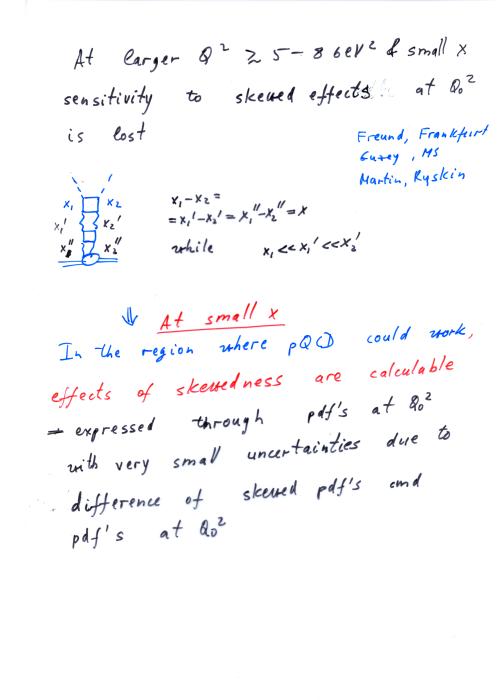 At larger Q² ≥ 5-8 GeV² & small x
sensitivity to skewed effects at Q₀²
is lost
Freund, Frankfurt
Guzey, MS
Martin, Ryskin
x₁ x₂
x₁' x₂'
x₁'' x₂''
x₁-x₂=
=x₁'-x₂'=x₁''-x₂''=x
while x₁<<x₁'<<x₂'
⇓ At small x
In the region where pQCD could work,
effects of skewedness are calculable
- expressed through pdf's at Q₀²
with very small uncertainties due to
difference of skewed pdf's and
pdf's at Q₀²